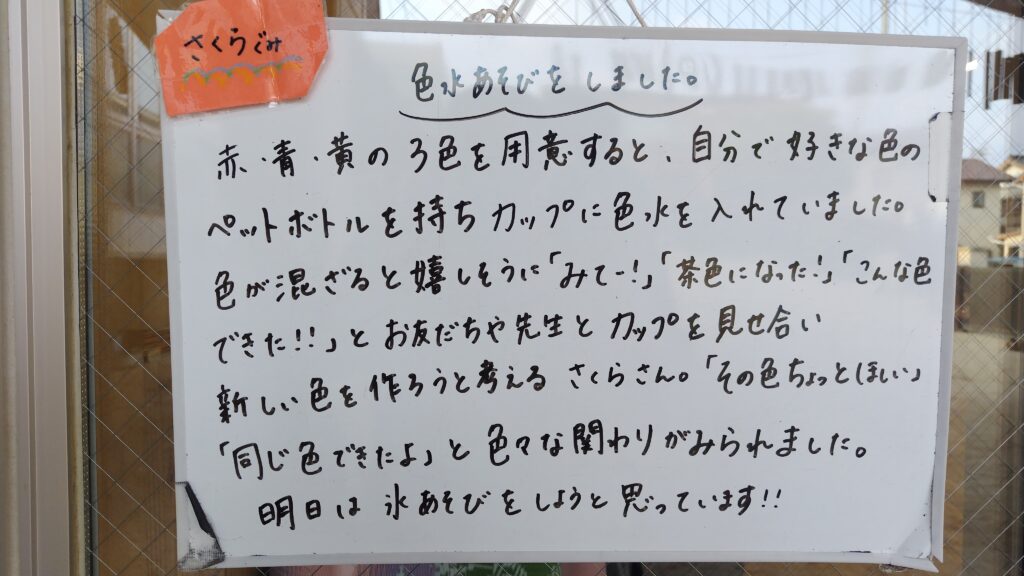 さくらぐみ
色水あそびをしました。
赤・青・黄の3色を用意すると、自分で好きな色の
ペットボトルを持ちカップに色水を入れていました。
色が混ざると嬉しそうに「みてー!」「茶色になった!」「こんな色
できた!!」とお友だちや先生とカップを見せ合い
新しい色を作ろうと考えるさくらさん。「その色ちょっとほしい」
「同じ色できたよ」と色々な関わりがみられました。
明日は氷あそびをしようと思っています!!